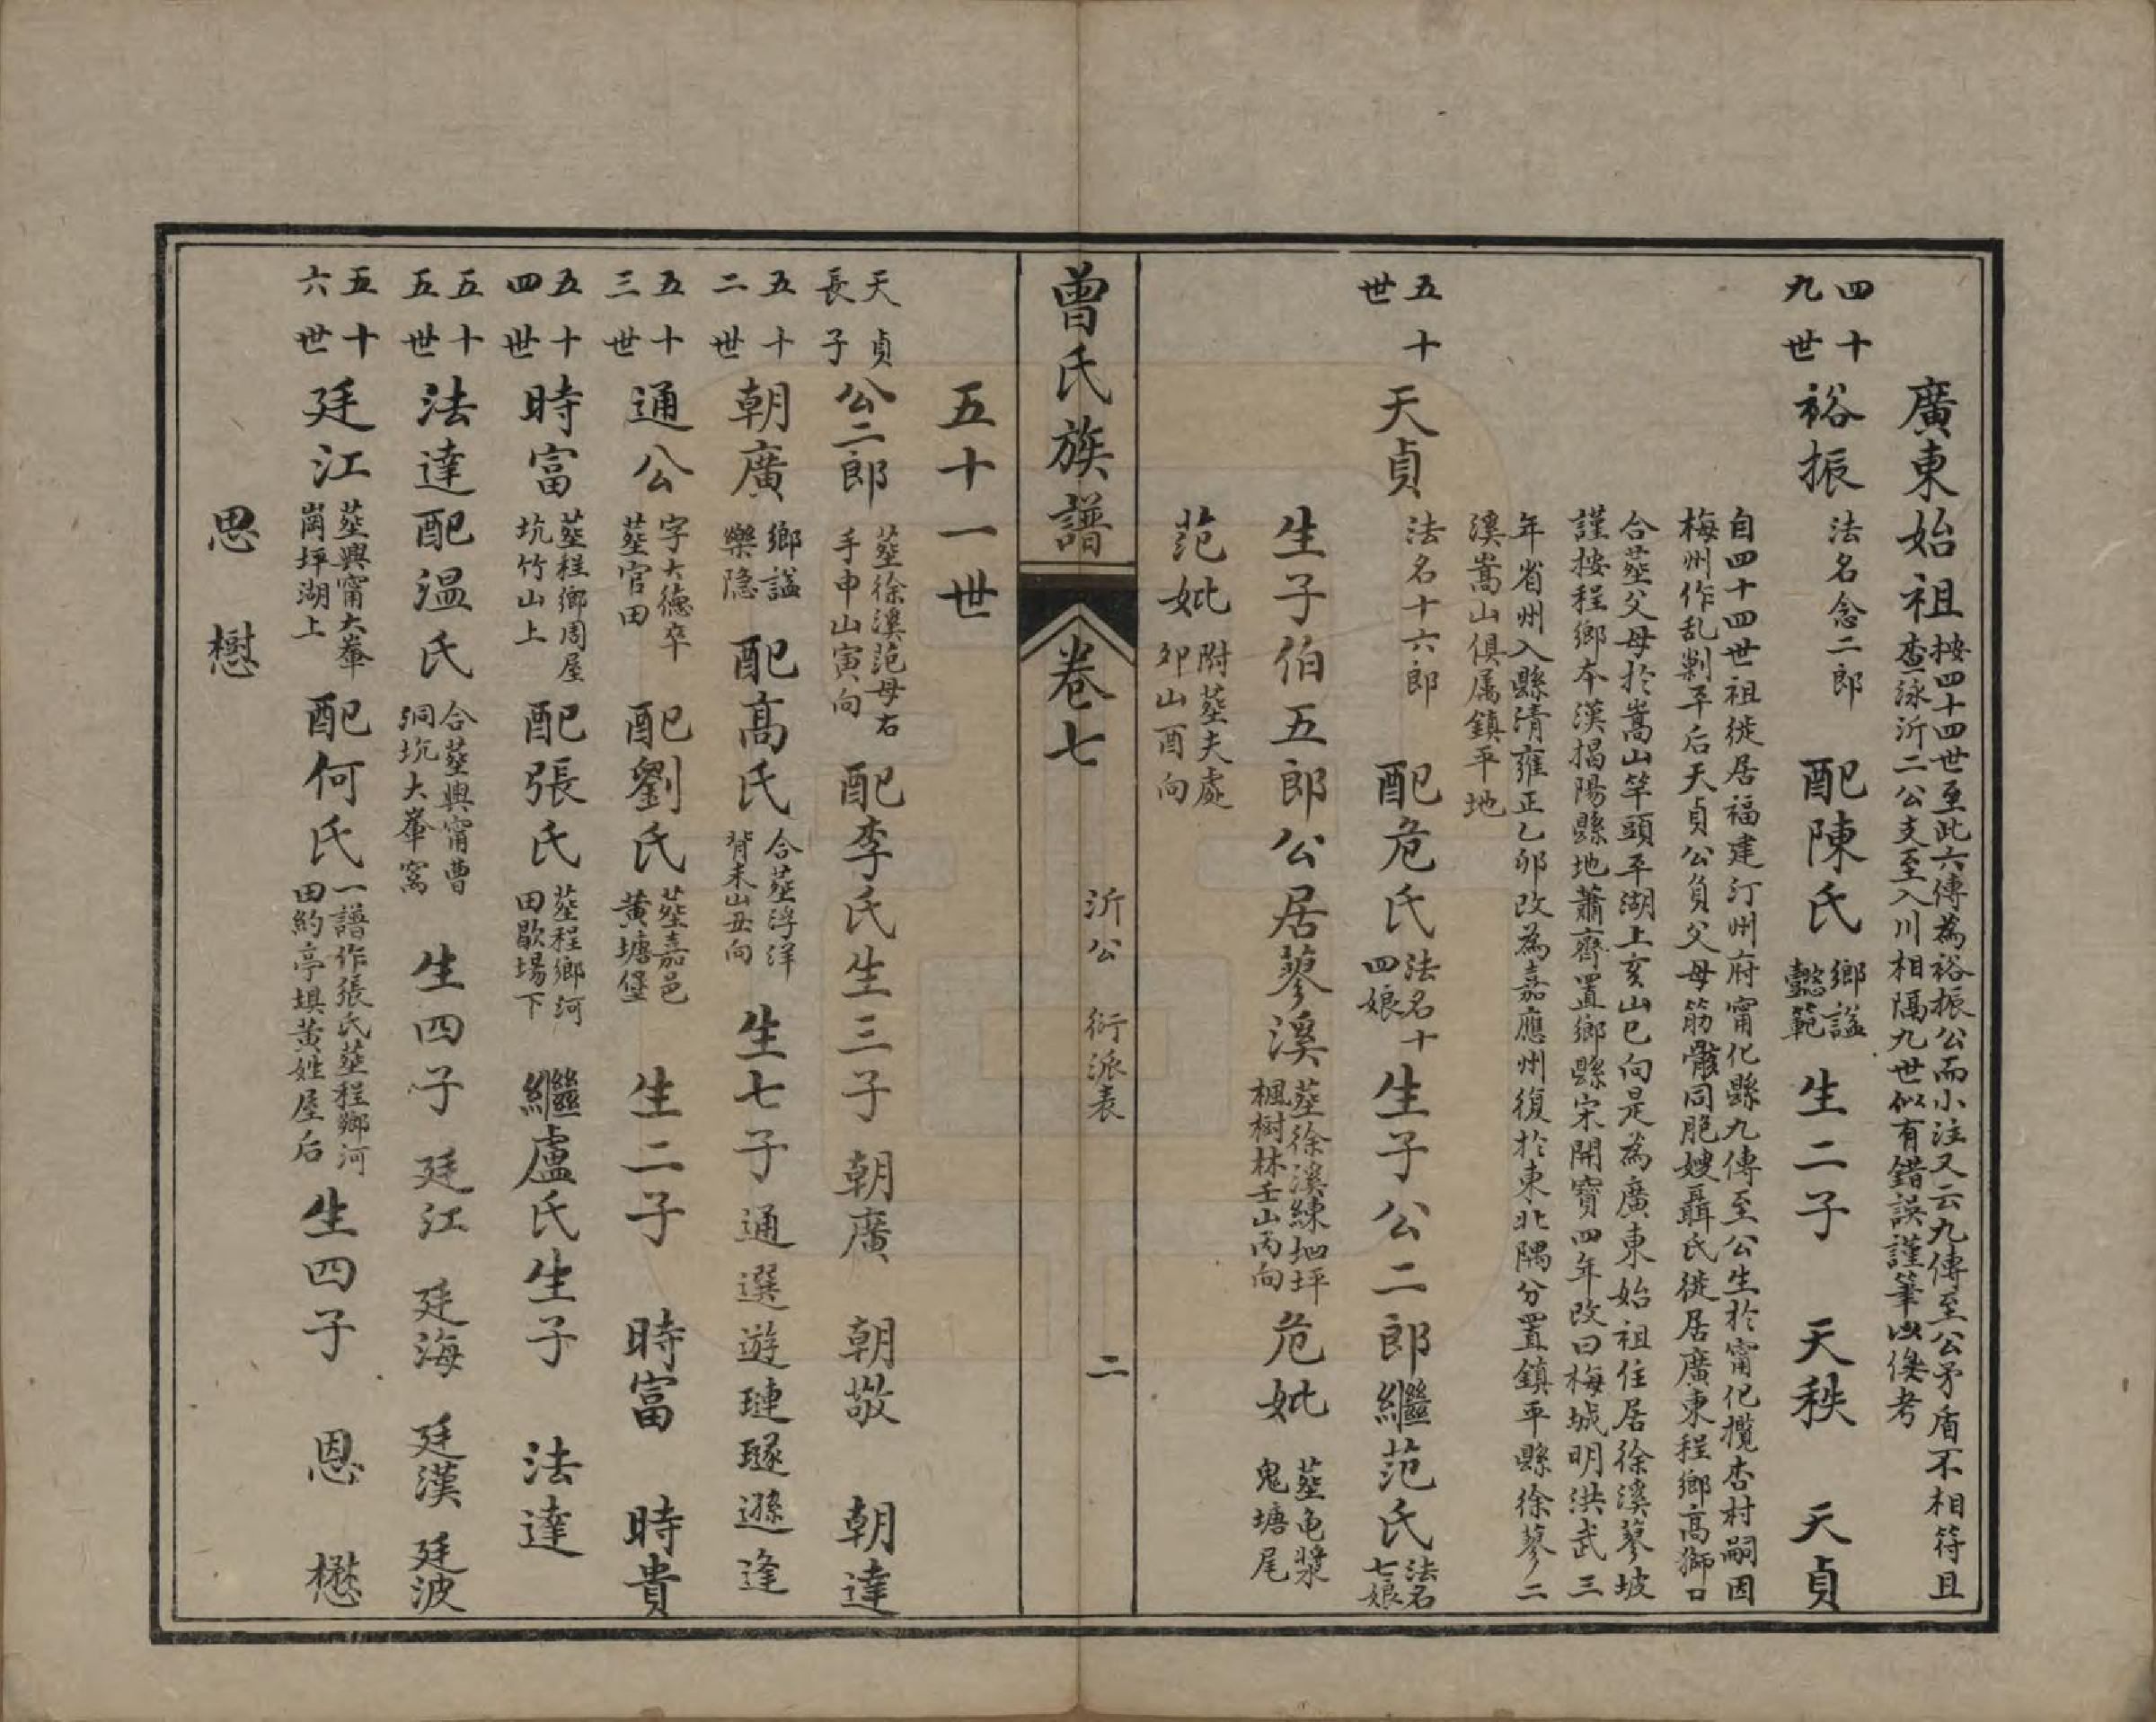 廣東始祖
按四十四世至此六傳為裕振公而小注又云九傳至公矛盾不相符且
查泳沂二公支至入川相隔九世似有錯誤謹筆以俟考
四十九世
裕振 法名念二郎 配陳氏 鄉謚懿範 生二子 天秩 天貞
自四十四世祖徙居福建汀州府甯化縣九傳至公生於甯化攬杏村嗣因
梅州作乱剿平后天貞公負父母筋骸同胞嫂聶氏徙居廣東程鄉高獅口
合塟父母於嵩山竿頭平湖上亥山巳向是為廣東始祖住居徐溪蓼坡
謹按程鄉本漢揭陽縣地蕭齊置鄉縣宋開寶四年改曰梅城明洪武三
年省州入縣清雍正乙卯改為嘉應州復於東北隅分置鎮平縣徐蓼二
溪嵩山俱属鎮平地
五十世
天貞 法名十六郎 配危氏 法名十四娘 生子公二郎繼范氏 法名七娘
生子伯五郎公居蓼溪 塟徐溪練地坪楓樹林壬山丙向 危妣 塟龟漿鬼塘尾
范妣 附塟夫處卯山酉向
曾氏族譜 卷七 沂公 衍派表 二
五十一世
天貞長子
公二郎 塟徐溪范母右手申山寅向 配李氏生三子 朝廣 朝敬 朝達
五十二世
朝廣 鄉謚樂隐 配高氏 合塟浮洋背未山丑向 生七子通選遊璉璲遜逢
五十三世
通公 字大德卒塟官田 配劉氏 塟嘉邑黄塘堡 生二子 時富 時貴
五十四世
時富 塟程鄉周屋坑竹山上 配張氏 塟程鄉河田歇場下 繼盧氏生子 法達
五十五世
法達配温氏 合塟興甯曹洞坑大輋窩 生四子 廷江 廷海 廷漢 廷波
五十六世
廷江 塟興甯大輋崗坪湖上 配何氏 一譜作張氏塟程鄉河田約亭埧黄姓屋后 生四子 恩 懋
思 懋